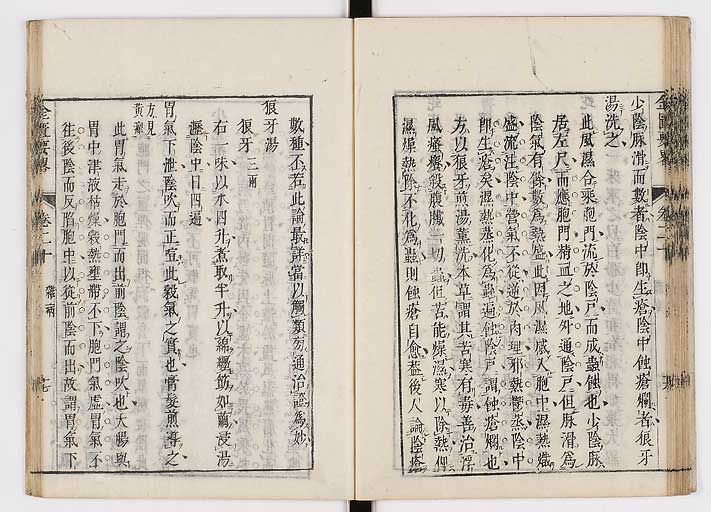 少陰脉滑而數者陰中即生瘡陰中蝕瘡爛者狼牙
湯洗之
此風濕合乘胞門流於陰戶而成蟲蝕也少陰脉
居左尺而應胞門精血之地外通陰戶但脉滑為
陰氣有餘數為熱盛此因風濕感入胞中濕熱熾
盛流注陰中營氣不從逆於肉理邪熱欝蒸陰中
即生瘡矣濕熱蒸化為蟲蝕陰戶謂蝕瘡爛也
方以狼牙煎湯薰洗本草謂其苦寒有毒善治浮
風瘙癢殺腹臟一切蟲但苦能燥濕寒以除熱俾
濕燥熱除不化為蟲則蝕瘡自愈蓋後人論陰瘡
數種不若此論最詳當以觸類旁通治證為妙
狼牙湯
狼牙三兩
右一味以水四升煮取半升以綿纏筯如繭浸湯
瀝陰中日四遍
胃氣下泄陰吹而正喧此穀氣之實也膏髮煎導之
方見黃疸
此胃氣走於胞門而出前陰謂之陰吹也大腸與
胃中津液枯燥穀熱壅滯不下胞門氣虛胃氣不
從後陰而反陷胞中以從前陰而出故謂胃氣下
金匱要略
卷二十
雜病